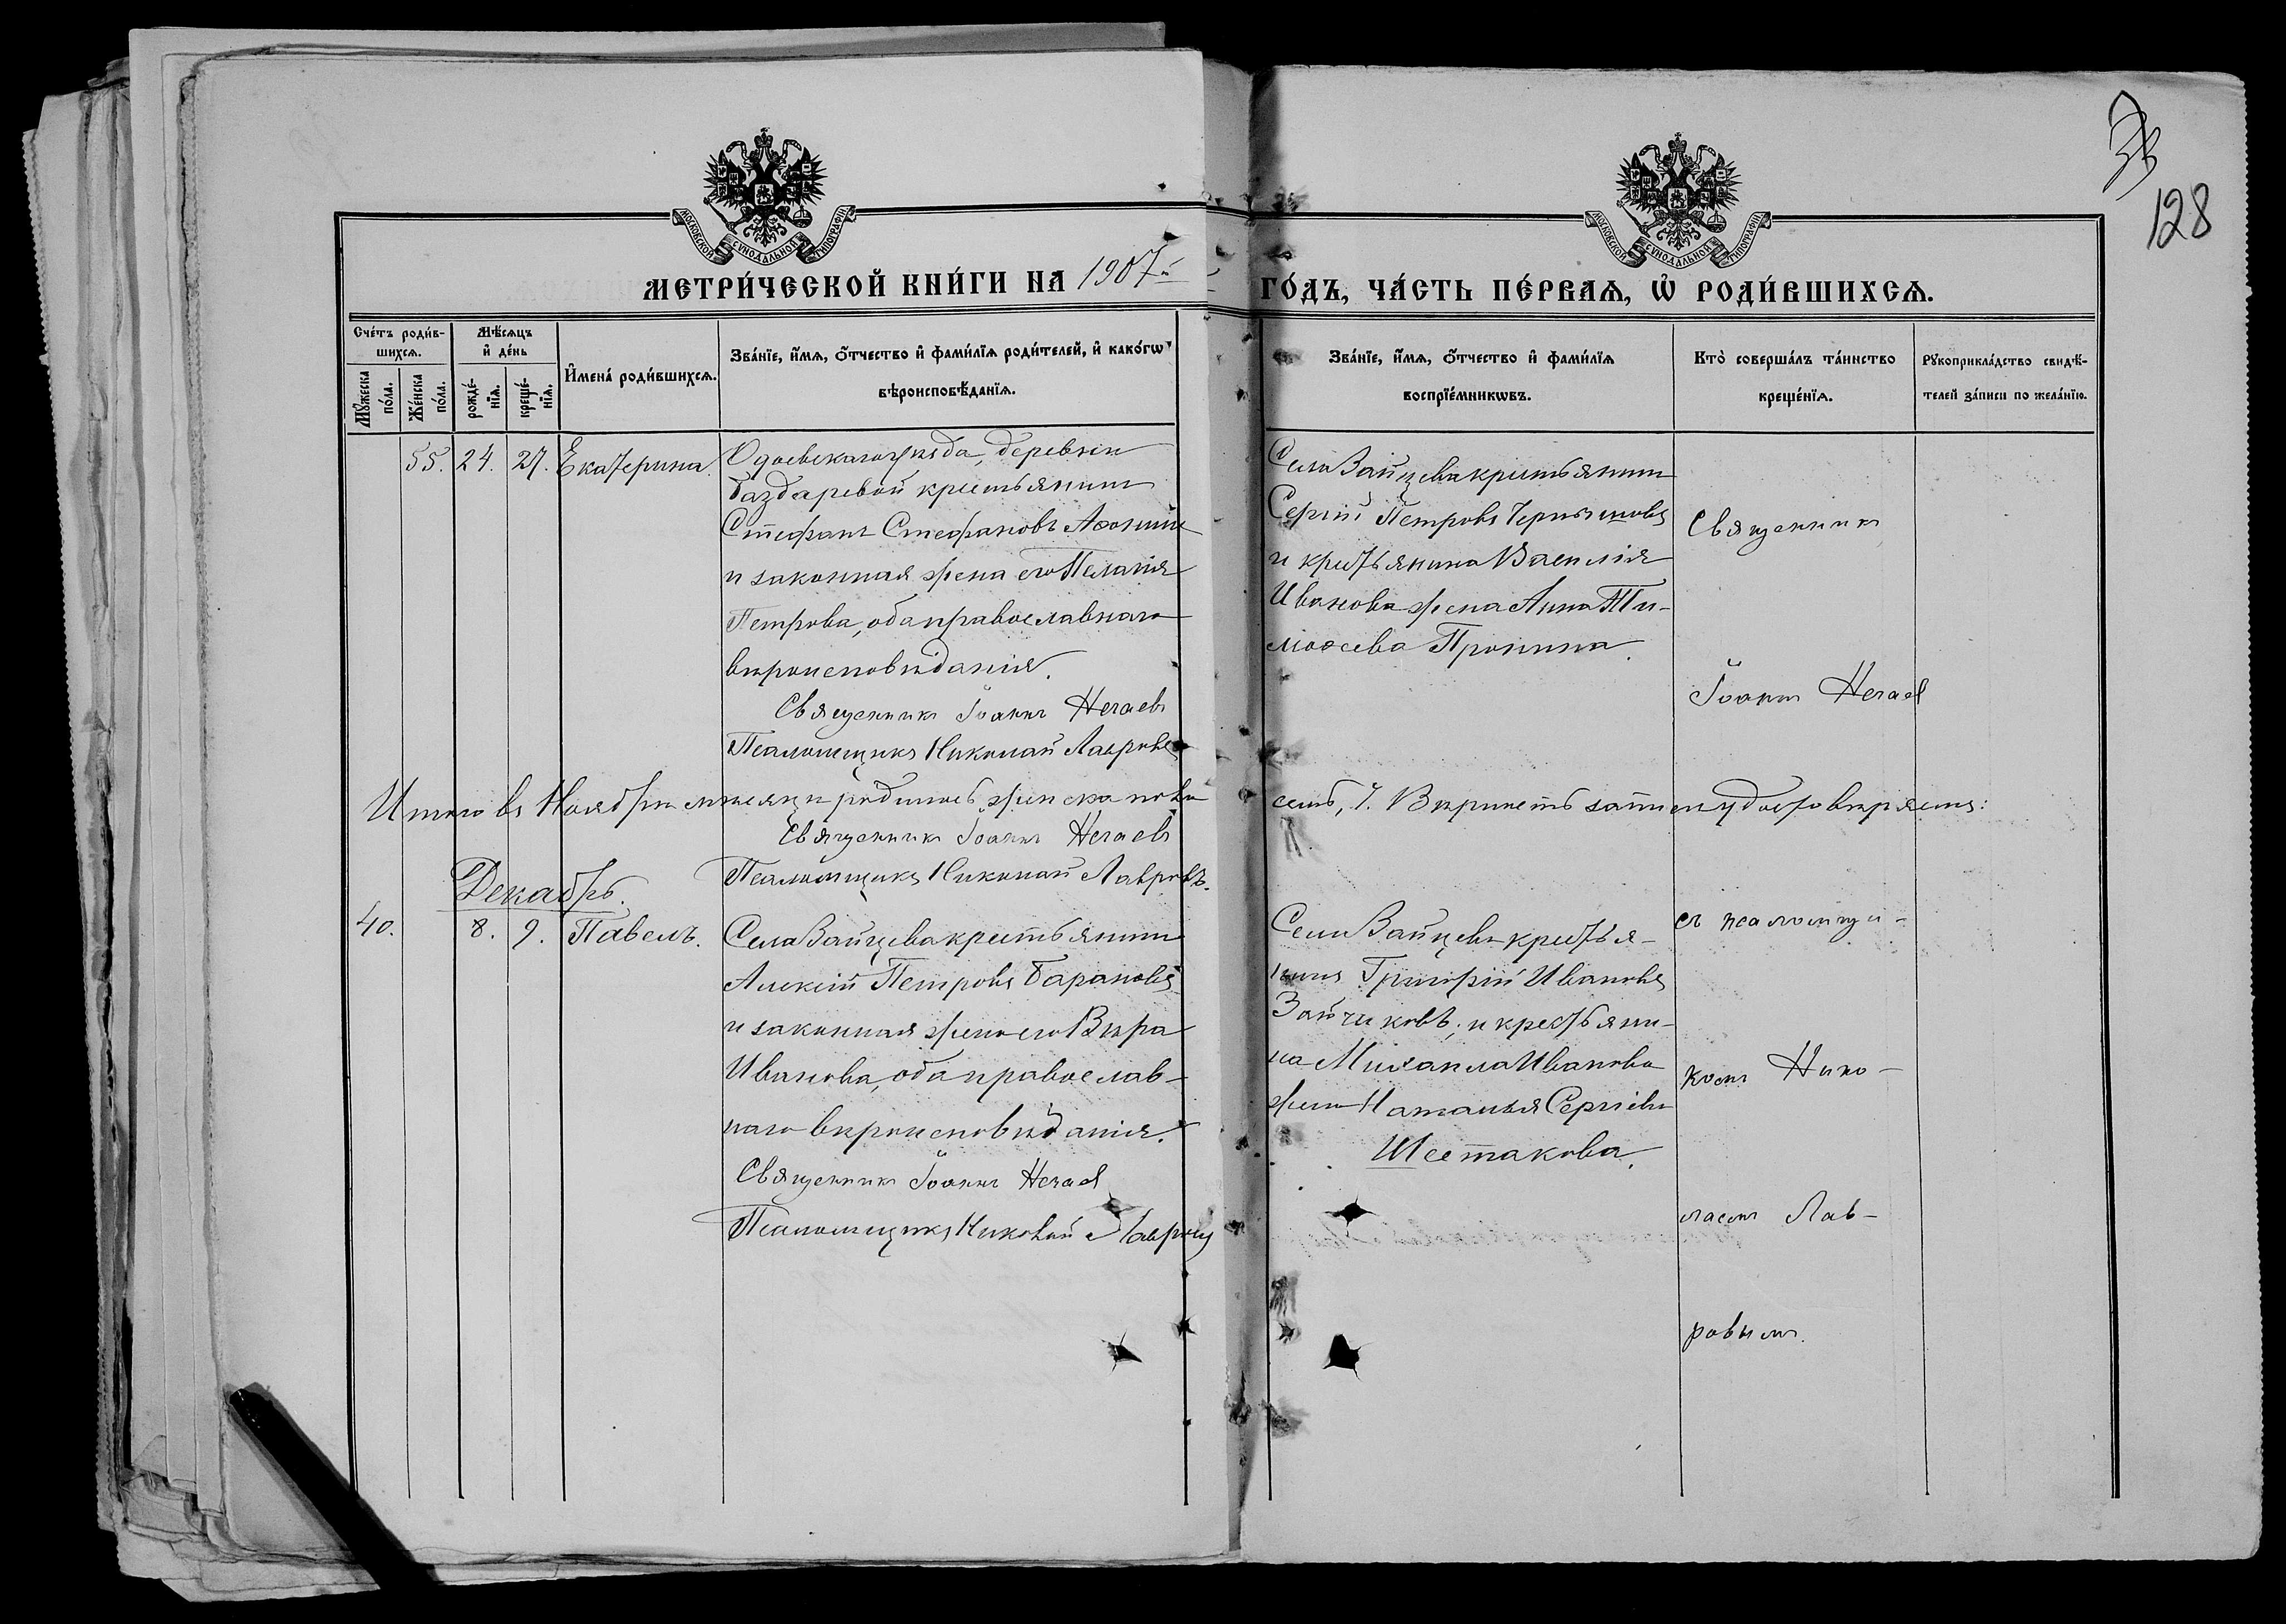 33
128
МОСКОВСКОЙ СѴНОДАЛЬНОЙ ТИПОГРАФІИ
МОСКОВСКОЙ СѴНОДАЛЬНОЙ ТИПОГРАФІИ
МЕТРИ́ЧЕСКОЙ КНИ́ГИ НА 1907й ГО́ДЪ, ЧА́СТЬ ПЕ́РВАѦ, Ѡ҆ РОДИ́ВШИХСѦ.
Сче́тъ роди́в-
шихсѧ.
Мꙋ́жеска
по́ла.
Же́нска
по́ла.
Мѣ́сѧцъ
и҆ де́нь
рожде́-
нїѧ.
креще́-
нїѧ.
И҆мена̀ роди́вшихсѧ.
Зва́нїе, и҆́мѧ, ѻ҆́тчество и҆ фами́лїѧ роди́телей, и҆ како́гѡ
вѣроисповѣ́данїѧ.
Зва́нїе, и҆́мѧ, ѻ҆́тчество и҆ фами́лїѧ
воспрїе́мникѡвъ.
Кто̀ соверша́лъ та́инство
креще́нїѧ.
Рꙋкоприкла́дство свидѣ́-
телей за́писи по жела́нїю.
55. 24. 27. Екатерина.
Одоевскаго уѣзда, деревни
Баздаревой крестьянинъ
Стефанъ Стефановъ Аѳонинъ
и законная жена его Пелагія
Петрова, оба православнаго
вѣроисповѣданія.
Священникъ Іоаннъ Нечаевъ
Псаломщикъ Николай Лавровъ
Села Зайцева крестьянинъ
Сергій Петровъ Чернышовъ
и крестьянина Василія
Иванова жена Анна Ти-
моѳеева Пронина.
Священникъ
Іоаннъ Нечаевъ
Итого въ Ноябрѣ мѣсяцѣ родилось женска пола семь, 7. Вѣрность записи удостовѣряемъ:
Священникъ Іоаннъ Нечаевъ
Псаломщикъ Николай Лавровъ.
Декабрь.
40. 8. 9. Павелъ.
Села Зайцева крестьянинъ
Алексій Петровъ Барановъ
и законная жена его Вѣра
Иванова, оба православ-
наго вѣроисповѣданія.
Священникъ Іоаннъ Нечаевъ
Псаломщикъ Николай Лавровъ
Села Зайцева крестья-
нинъ Григорій Ивановъ
Зайчиковъ; и крестьяни-
на Михаила Иванова
жена Наталья Сергіева
Шестакова.
съ псаломщи-
комъ Нико-
лаемъ Лав-
ровымъ.